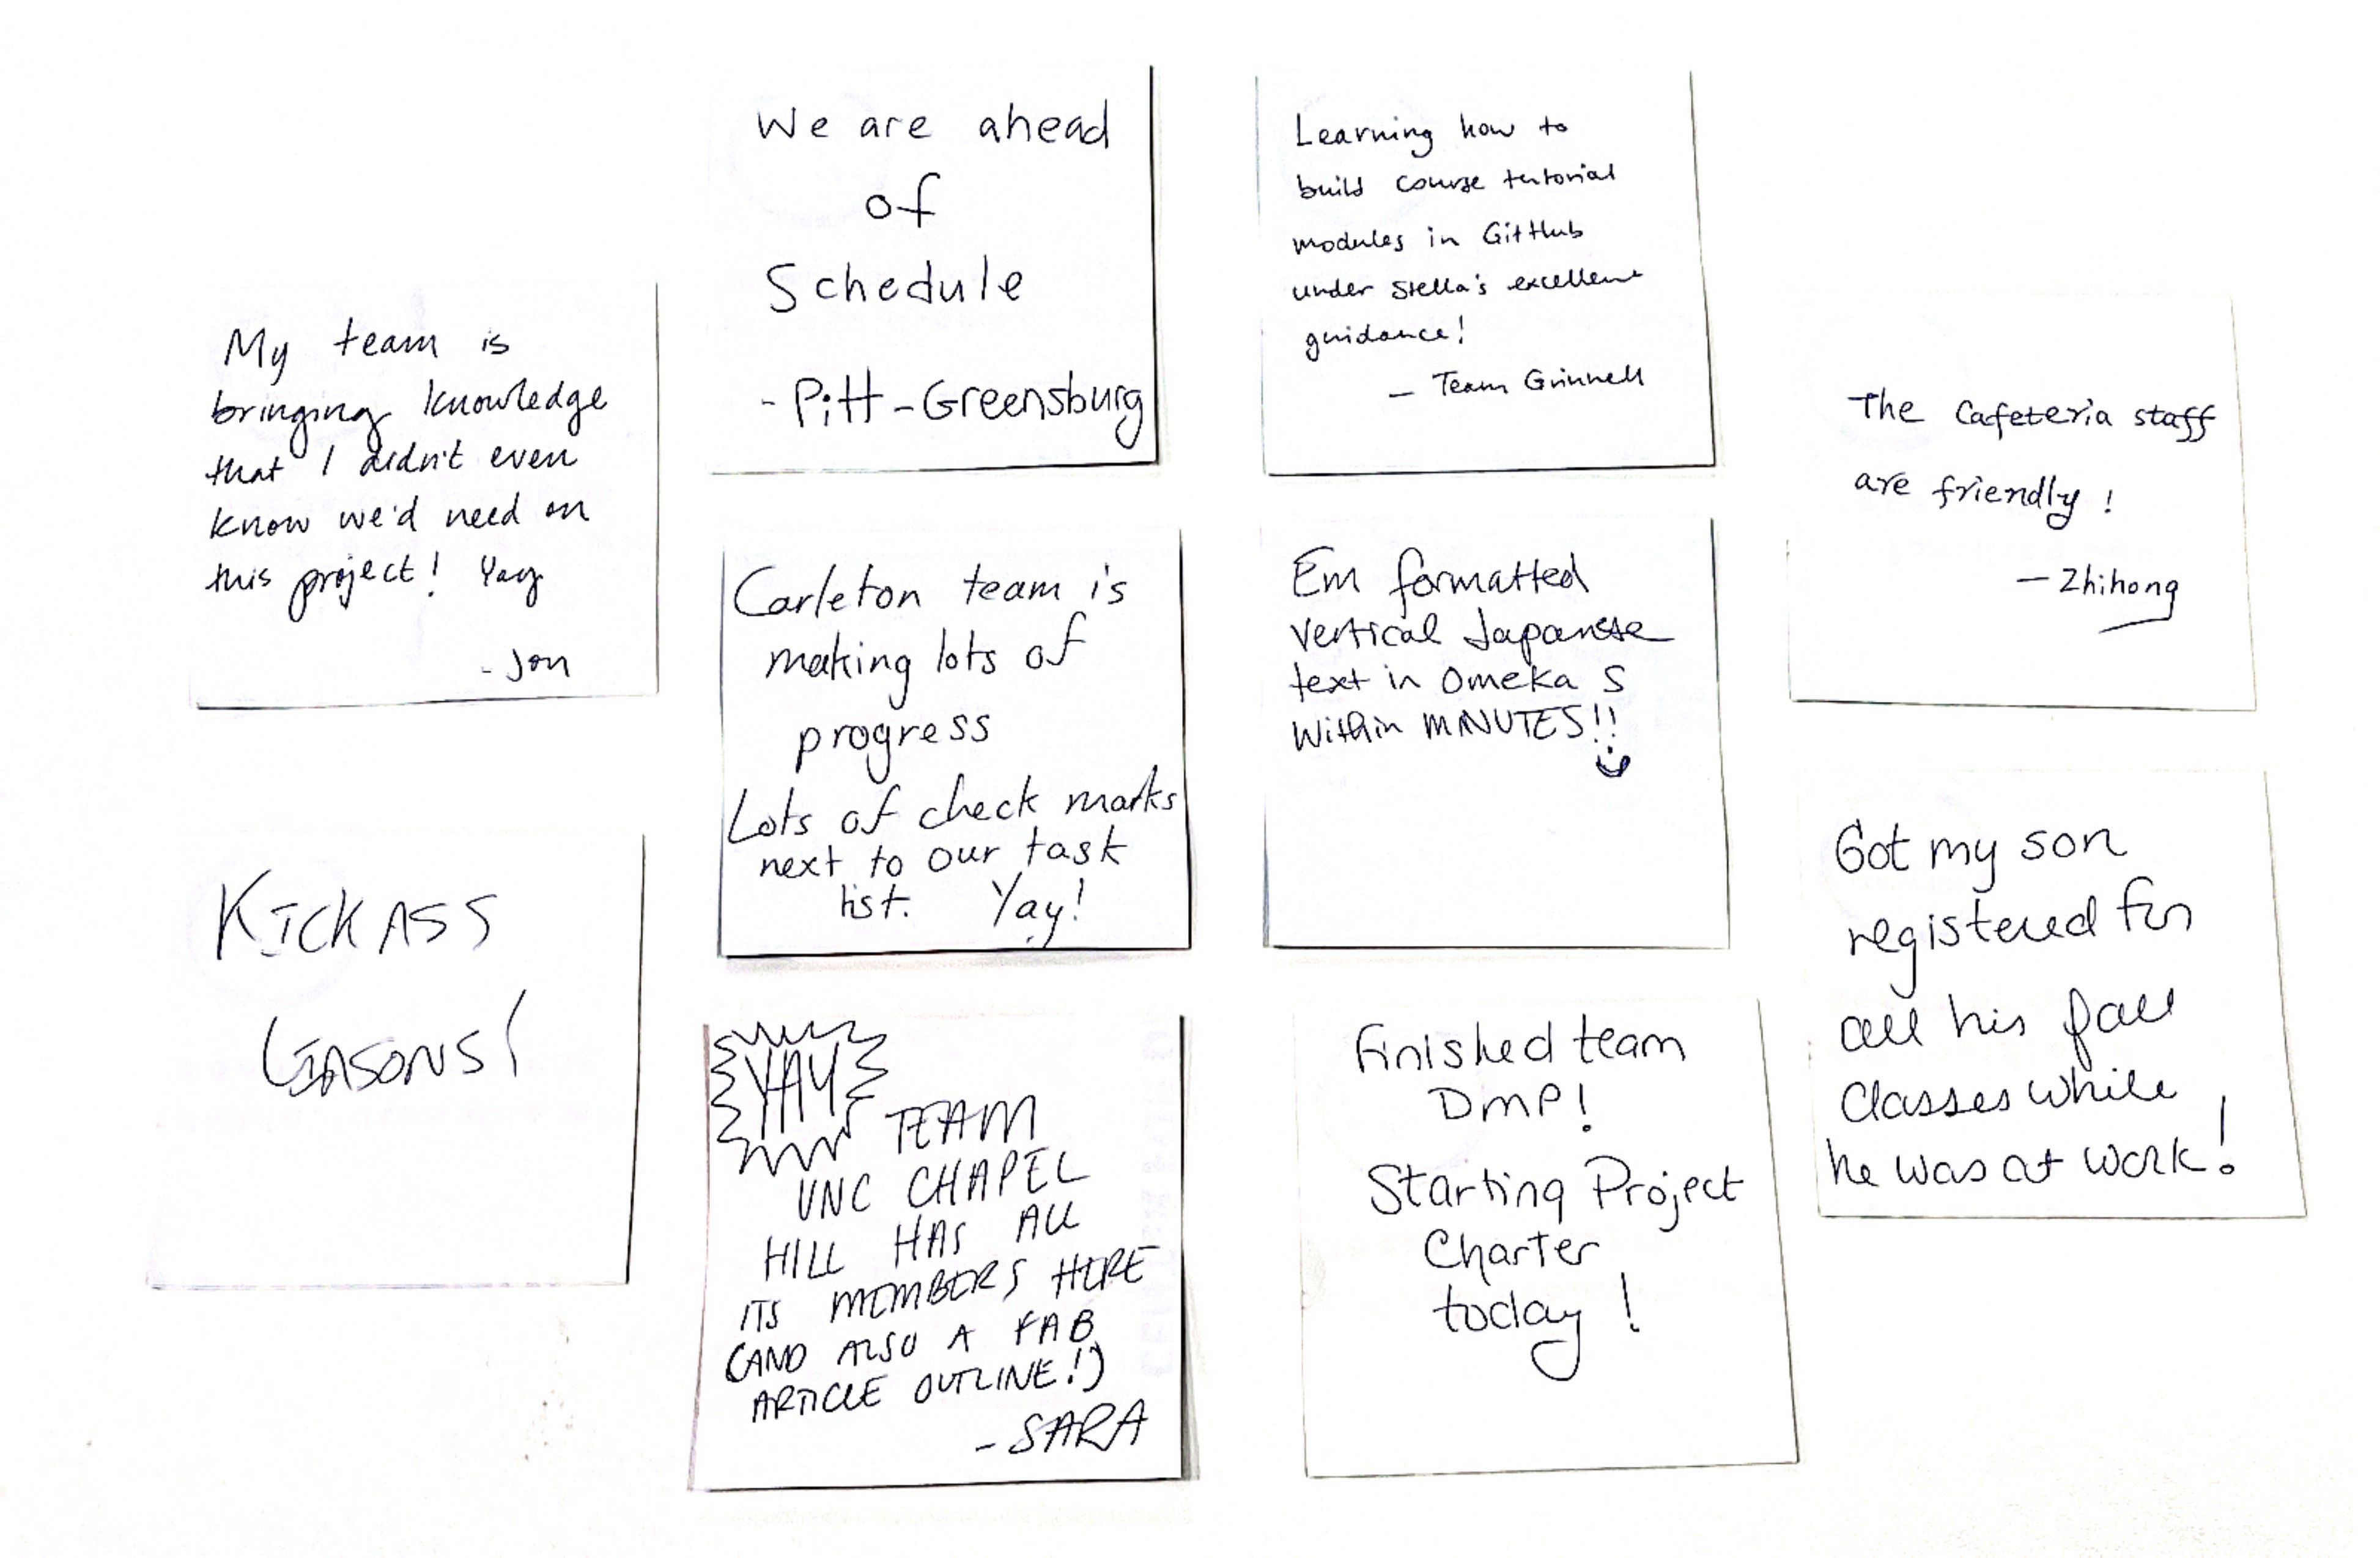 My team is
bringing knowledge
that I didn't even
know we'd need on
this project! Yay
- Jon
KICKASS
LIASONS!
We are ahead
of
Schedule
- Pitt-Greensburg
Carleton team is
making lots of
progress
Lots of check marks
next to our task
list. Yay!
YAY
TEAM
UNC CHAPEL
HILL HAS ALL
ITS MEMBERS HERE
(AND ALSO A FAB
ARTICLE OUTLINE!)
- SARA
Learning how to
build course tutorial
modules in GitHub
under Stella's excellent
guidance!
— Team Grinnell
Em formatted
vertical Japanese
text in Omeka S
Within MINUTES!!
Finished team
DMP!
Starting Project
Charter
today!
The Cafeteria staff
are friendly!
— Zhihong
Got my son
registered for
all his fall
classes while
he was at work!